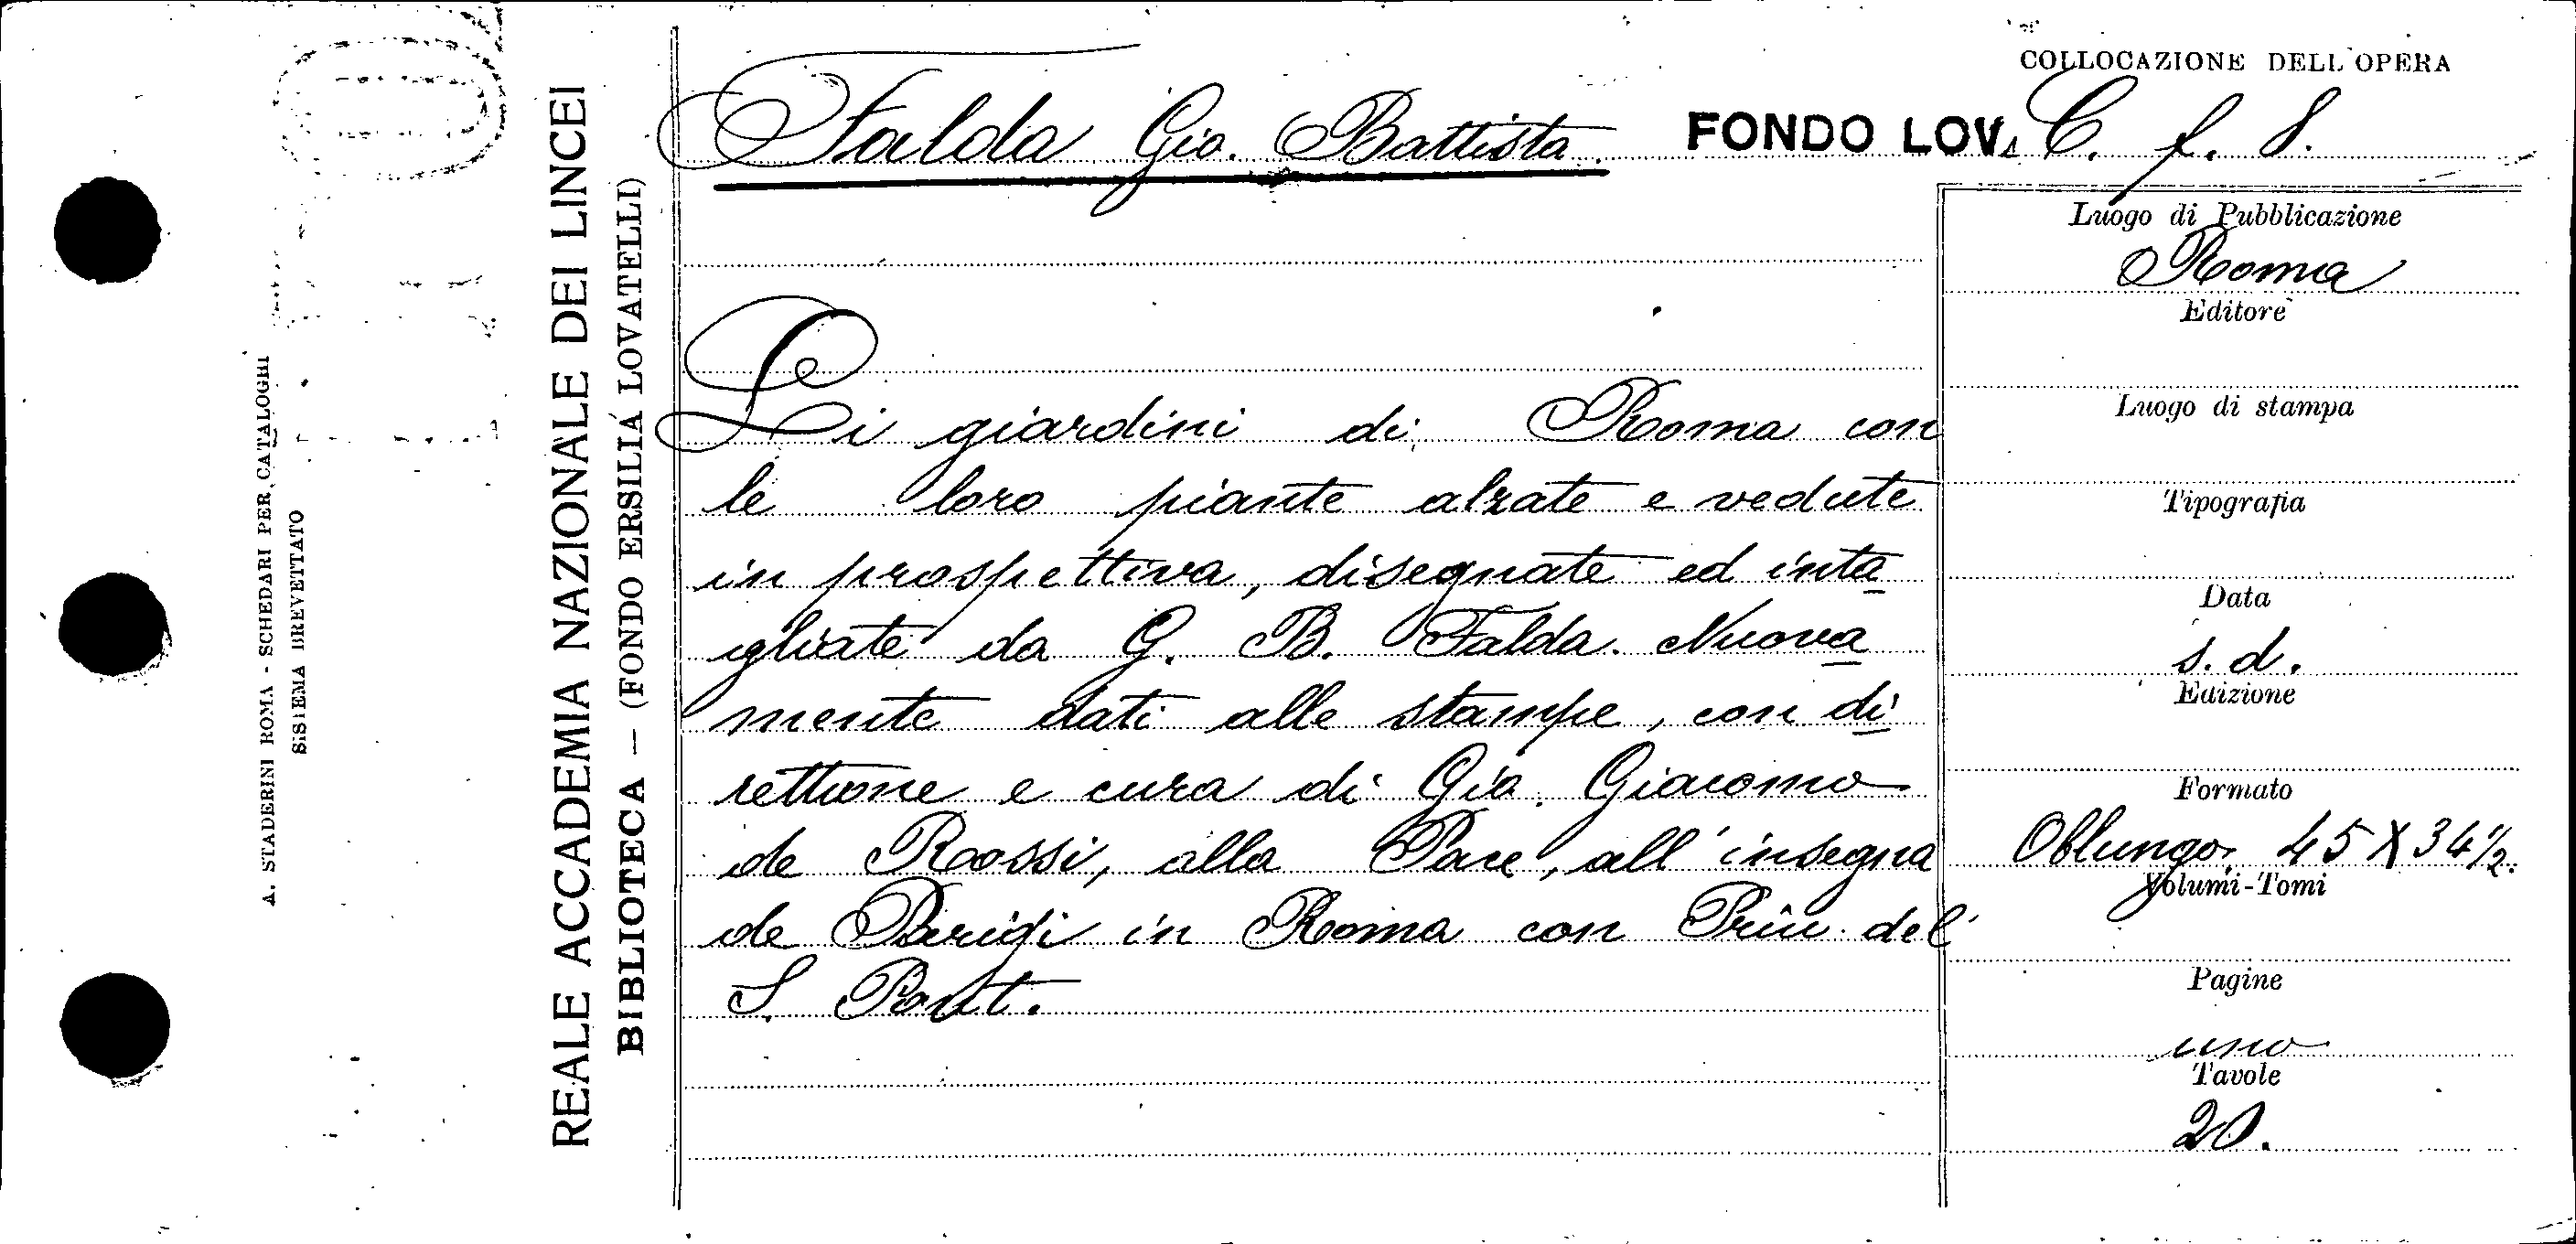 COLLOCAZIONE DELL'OPERA
Falda Gio. Battista
FONDO LOV. C. f. 8.
Li giardini di Roma con
le loro piante alzate e vedute
in prospettiva, disegnate ed inta
gliate da G. B. Falda. Nuova
mente dati alle stampe, con di
rettione e cura di Gio. Giacomo
de Rossi, alla Pace, all'insegna
de Parigi in Roma con Priu. del
S. Pont.
Luogo di Pubblicazione
Roma
Editore
Luogo di stampa
Tipografia
Data
s. d.
Edizione
Formato
Oblungo, 45 X 34 1/2.
Volumi-Tomi
Pagine
uno
Tavole
20.
REALE ACCADEMIA NAZIONALE DEI LINCEI
BIBLIOTECA — (FONDO ERSILIA LOVATELLI)
A. STADERINI ROMA - SCHEDARI PER CATALOGHI
SISTEMA BREVETTATO